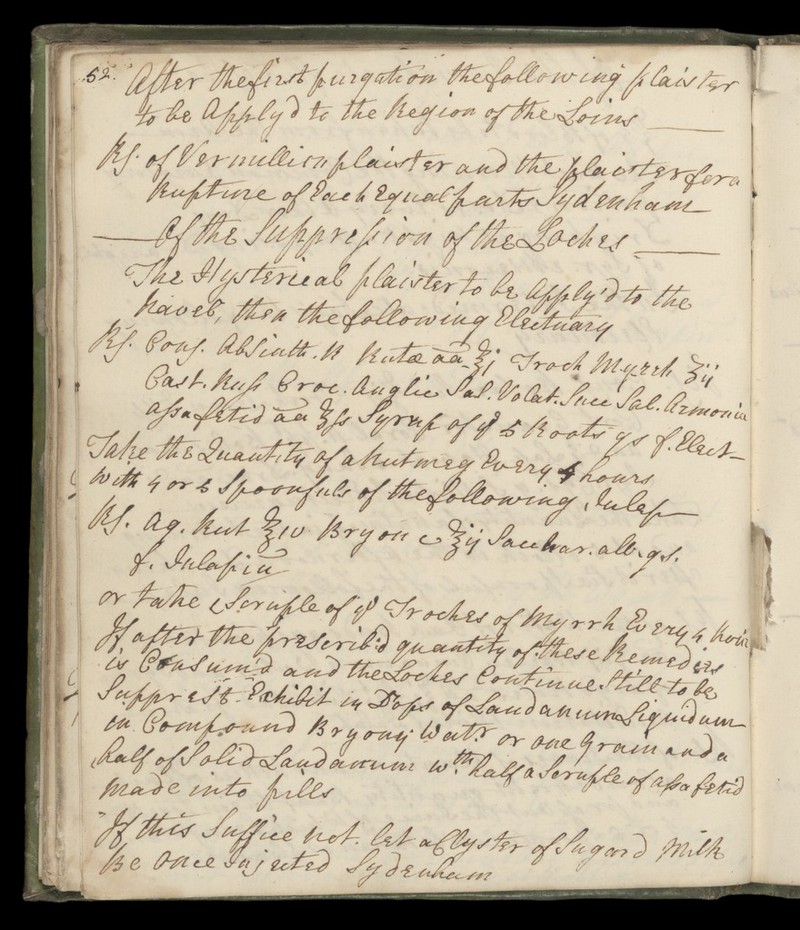 52. After the first purgation the following plaister
to be Apply'd to the Region of the Loins
Rs. of Vermillion plaister and the plaister for a
Rupture of Each Equal parts Sydenham
Of the Suppression of the Loches
The Hysterical plaister to be Apply'd to the
Navel, then the following Electuary
Rs. Cons. Absinth. R Rutæ aa ℥j Troch Myrrh ʒij
Cast. Russ Croc. Anglic Sal. Volat. Succ Sal. Armonia
assafetid aa ʒſs Syrup of yᵉ 5 Roots qs f. Elect
Take the Quantity of a Nutmeg Every 4 hours
With 4 or 5 Spoonfuls of the following Julep
Rs. Aq. Rut ℥iv Bryon c ℥ij Sacchar. alb. qs.
f. Julapiū
or take Scruple of yᵉ Troches of Myrrh Every 4 hours
If after the prescrib'd quantity of these Remedies
is Consum'd and the Loches Continue Still to be
Supprest. Exhibit Dops of Laudanum Liquidum
in Compound Bryony Watr. or one Grain and a
half of Solid Laudanum wth. half a Scruple of assafetid
made into pills
If this Suffice not. let a Clyster of Sugard Milk
Be once Injected Sydenham